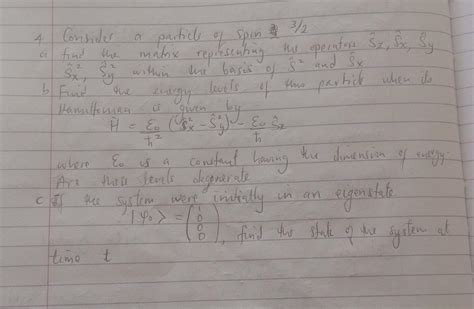 4 Consider a particle of Spin 3/2
a find the matrix representing the operators Ŝz, Ŝx, Ŝy
Ŝx², Ŝy² within the basis of Ŝ² and Ŝx
b Find the energy levels of this particle when its
Hamiltonian is given by
Ĥ = ε₀/ħ² (Ŝx² - Ŝy²) - ε₀/ħ Ŝz
where ε₀ is a constant having the dimension of energy.
Are these levels degenerate
c If the system were initially in an eigenstate
|ψ₀> = (1 0 0 0), find the state of the system at
time t